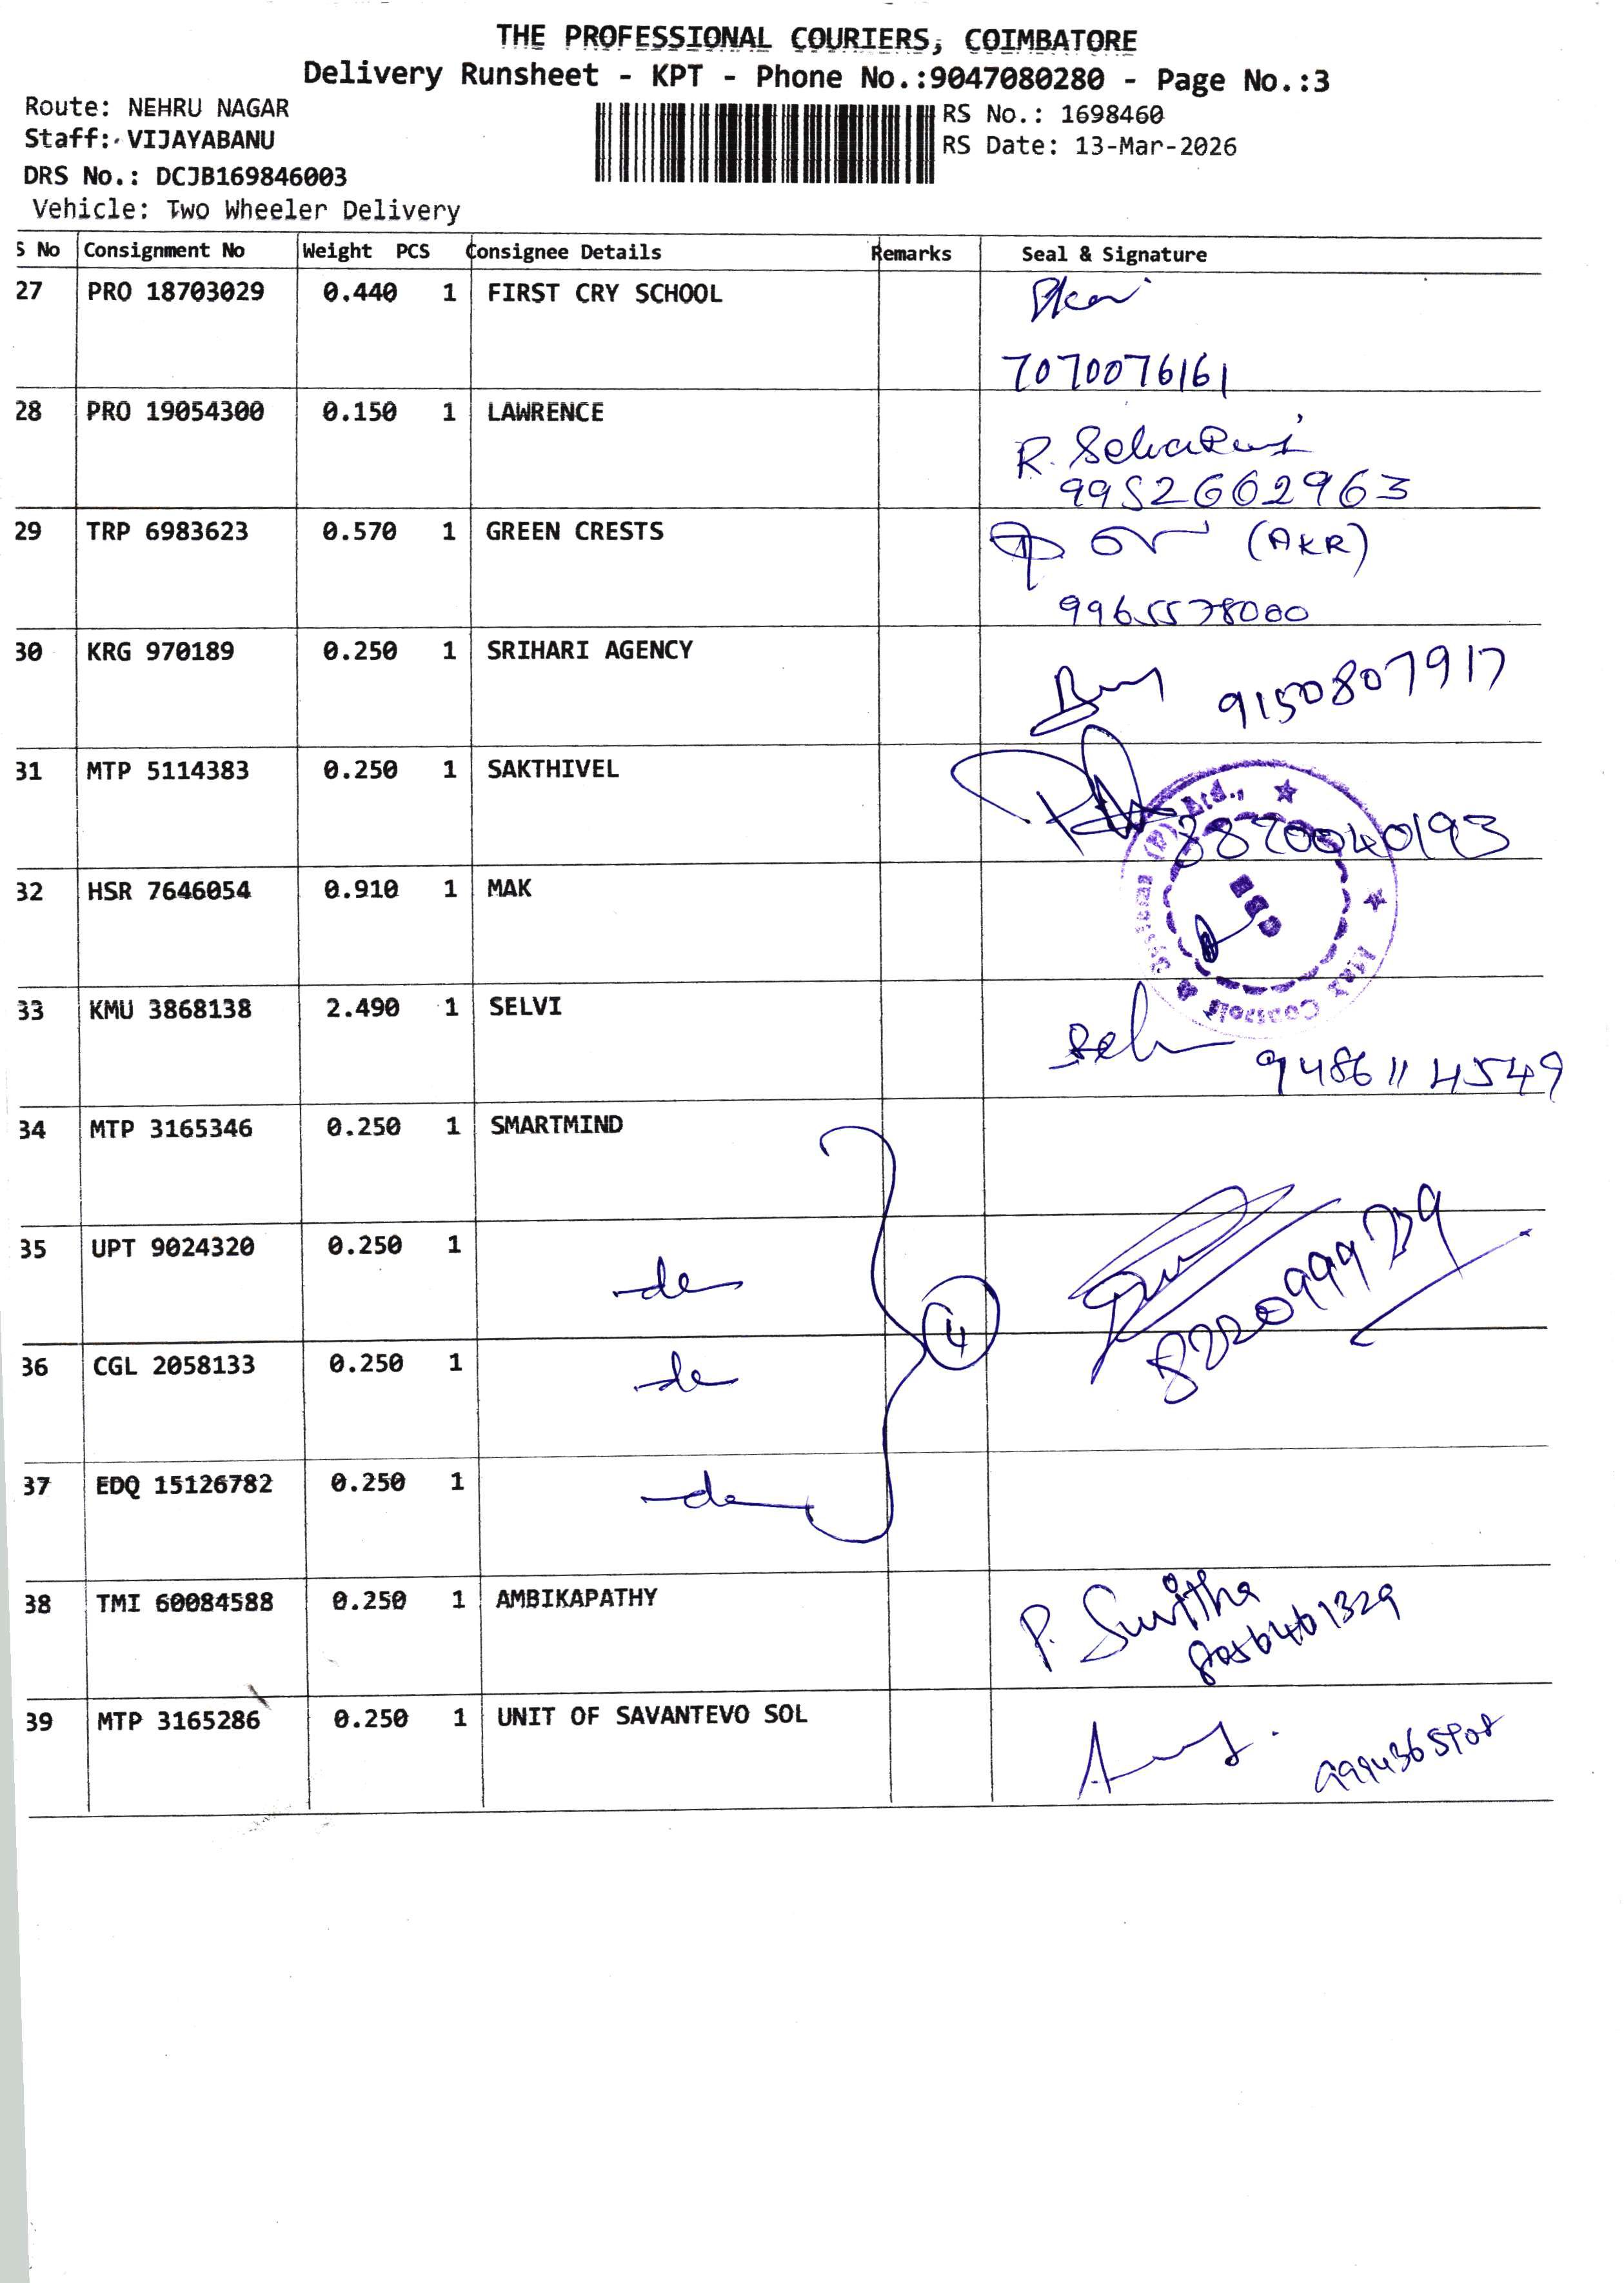 THE PROFESSIONAL COURIERS, COIMBATORE
Delivery Runsheet - KPT - Phone No.:9047080280 - Page No.:3
Route: NEHRU NAGAR
RS No.: 1698460
Staff: VIJAYABANU
RS Date: 13-Mar-2026
DRS No.: DCJB169846003
Vehicle: Two Wheeler Delivery
S No Consignment No Weight PCS Consignee Details Remarks Seal & Signature
27 PRO 18703029 0.440 1 FIRST CRY SCHOOL
7070076161
28 PRO 19054300 0.150 1 LAWRENCE
R.
9952602963
29 TRP 6983623 0.570 1 GREEN CRESTS (AKR)
9965578000
30 KRG 970189 0.250 1 SRIHARI AGENCY
9150807917
31 MTP 5114383 0.250 1 SAKTHIVEL
(P) Ltd.,
32 HSR 7646054 0.910 1 MAK
CBE
33 KMU 3868138 2.490 1 SELVI
9486114549
34 MTP 3165346 0.250 1 SMARTMIND
35 UPT 9024320 0.250 1
-do-
4
36 CGL 2058133 0.250 1
-do-
37 EDQ 15126782 0.250 1
-do-
38 TMI 60084588 0.250 1 AMBIKAPATHY
P.
8056461329
39 MTP 3165286 0.250 1 UNIT OF SAVANTEVO SOL